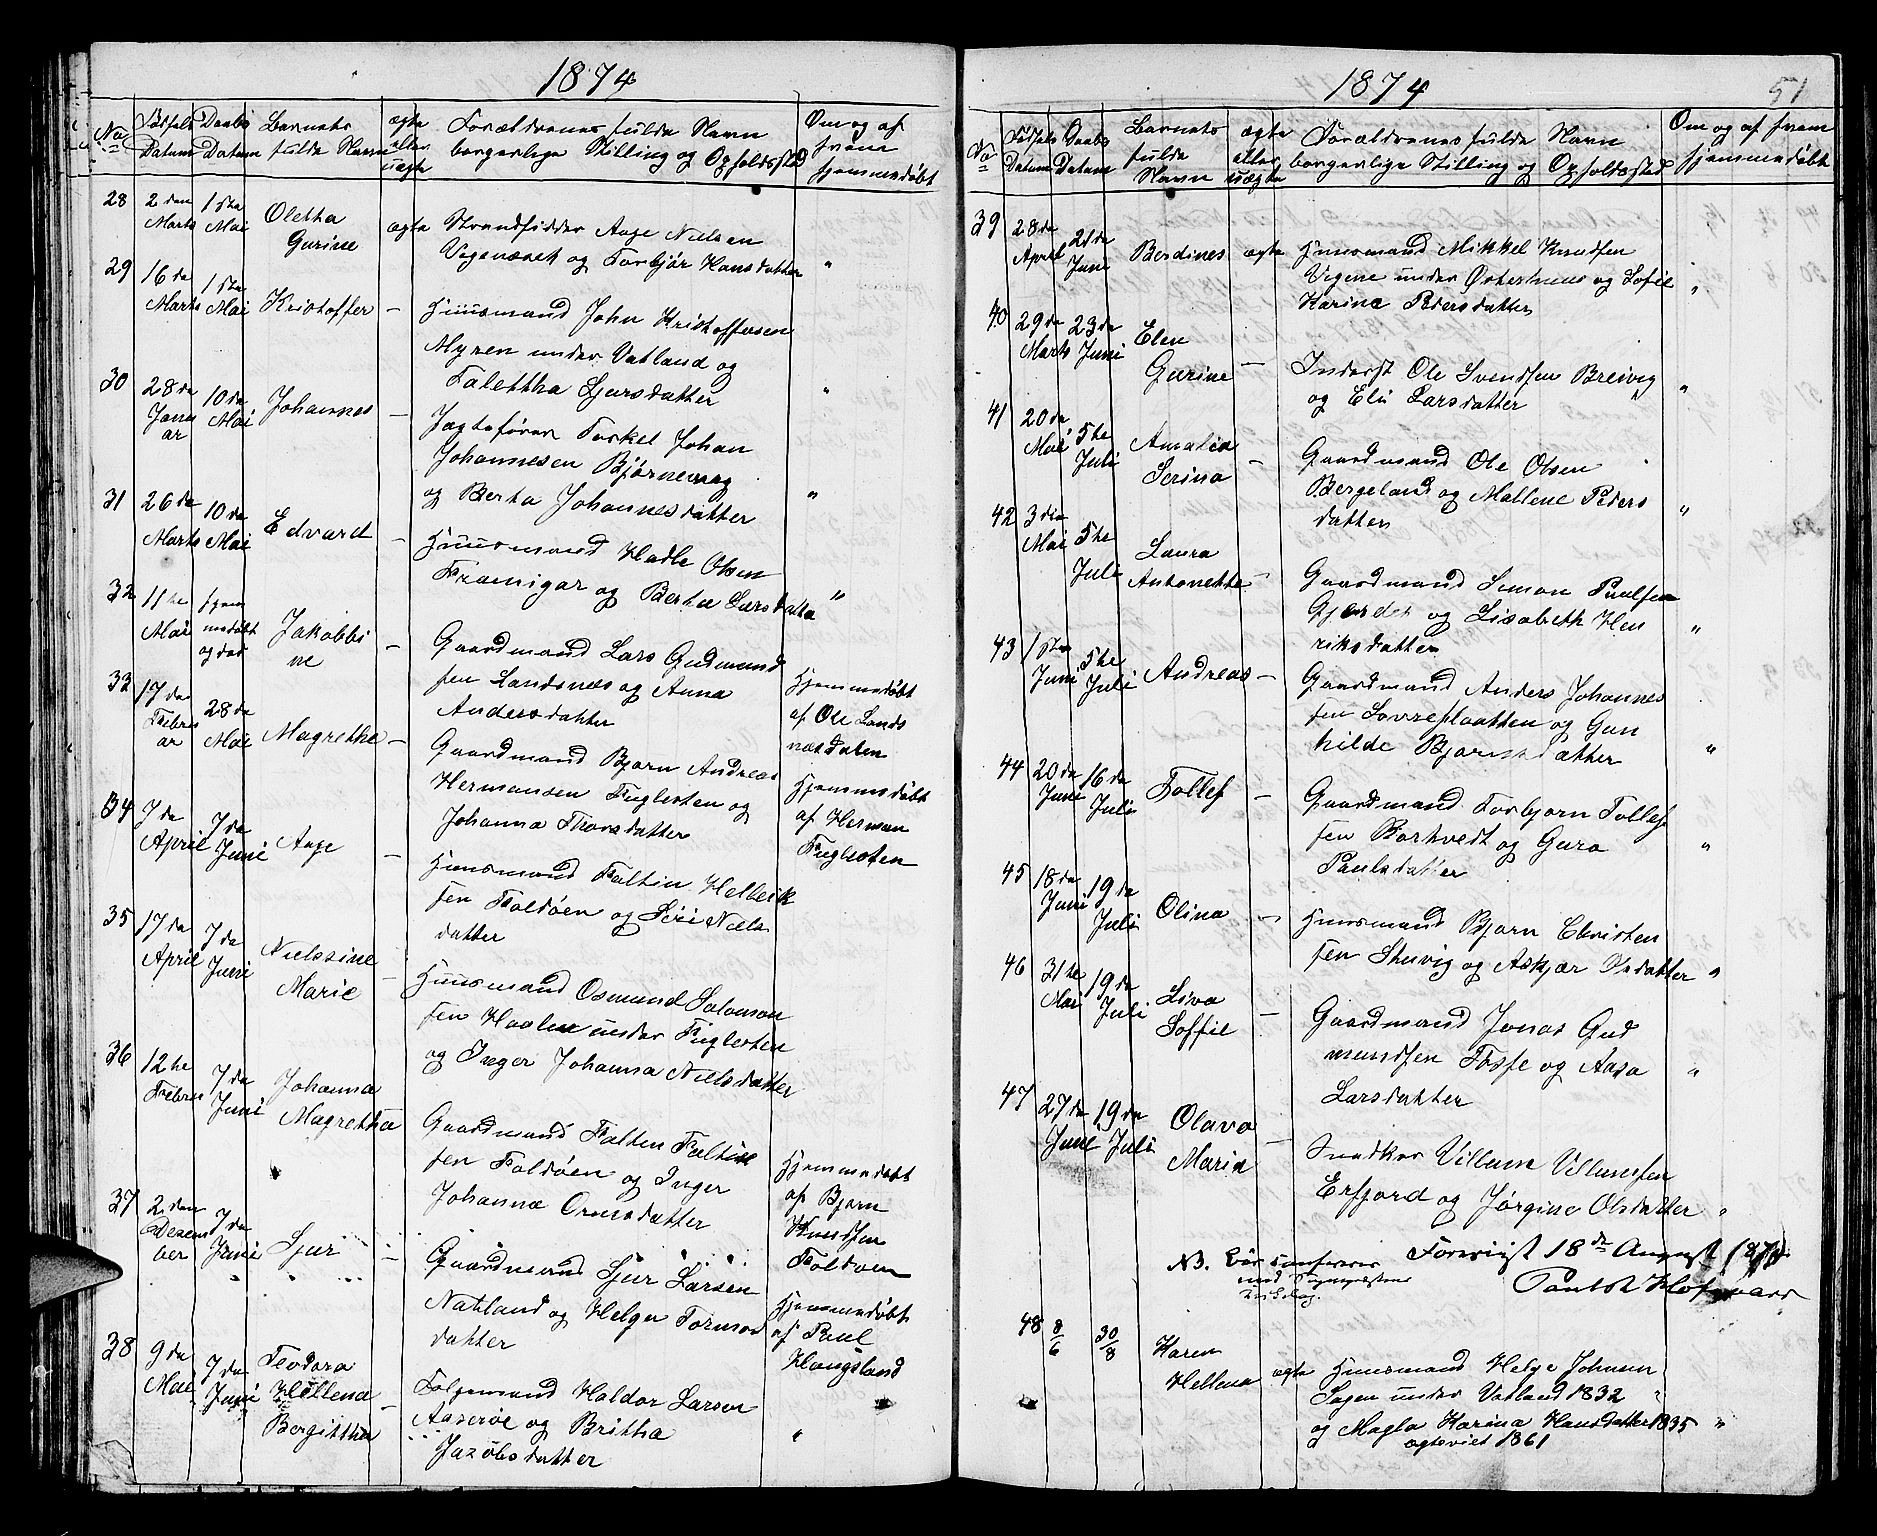 1874
No
Fødsels
Datum
Daabs
Datum
Barnets
fulde Navn
ægte
eller
uægte
Forældrenes fulde Navn
borgerlige Stilling og Opholdssted
Om og af
hvem
hjemmedøbt
28
2den
Marts
1ste
Mai
Oletha
Gurine
ægte
Strandsidder Aage Nielsen
og Torbjør Hansdatter
"
29
16de
Marts
1ste
Mai
Kristoffer
—
Huusmand John Kristoffersen
Myren under Vatland og
Talettha Sjursdatter
"
30
28de
Janu
ar
10de
Mai
Johannes
—
Jagtefører Torkel Johan
Johannesen Bjørnevaag
og Berta Johannesdatter
"
31
26de
Marts
10de
Mai
Edvard
—
Huusmand Hadle Olsen
og Berta Larsdatte
"
32
11te
Mai
hjem
medøbt
og død
Jakobbi
ne
—
Gaardmand Lars Gudmund
sen Landsnes og Anna
Andersdatter
Hjemmedøbt
af Ole Lands
næsdalen
33
17de
Febru
ar
28de
Mai
Magrethe
—
Gaardmand Bjørn Andreas
Hermansen Fuglesten og
Johanna Thorsdatter
Hjemmedøbt
af Herman
Fuglesten
34
7de
April
7de
Juni
Aage
—
Huusmand Faltin Helleik
sen Foldøen og Siri Niels
datter
35
17de
April
7de
Juni
Nielssine
Marie
—
Huusmand Osmund Salomon
sen Haalen under Fuglesten
og Inger Johanna Nielsdatter
36
12te
Febru
7de
Juni
Johanna
Magretha
Gaardmand Falten Faltin
sen Foldøen og Inger
Johanna Ormsdatter
Hjemmedøbt
af Bjørn
Knudsen
Foldøen
37
2den
Desem
ber
7de
Juni
Sjur
—
Gaardmand Sjur Larsen
Natland og Helga Tormod
datter
Hjemmedøbt
af Paul
Haugsland
38
9de
Mai
7de
Juni
Teodora
Hellena
Bergitthe
—
Folgemand Haldor Larsen
Aaserøe og Brittha
Jakobsdatter
"
1874
51
No
Fødsels
Datum
Daabs
Datum
Barnets
fulde
Navn
ægte
eller
uægte
Forældrenes fulde Navn
borgerlige Stilling og Opholdssted
Om og af hvem
hjemmedøbt
39
28de
April
21de
Juni
Berdines
ægte
Huusmand Mikkel Knudsen
Vegene under Østerhuus og Sofie
Karine Pedersdatter
"
40
29de
Marts
23de
Juni
Elen
Gurine
—
Inderst Ole Svendsen Breivig
og Eli Larsdatter
"
41
20de
Mai
5te
Juli
Amalia
Serina
—
Gaardmand Ole Olsen
Bergeland og Mallene Peders
datter
"
42
3die
Mai
5te
Juli
Laura
Antonette
—
Gaardmand Simon Paulsen
Gjerdet og Lisabeth Hen
riksdatter
"
43
1ste
Juni
5te
Juli
Andreas
—
Gaardmand Anders Johannes
sen Lovreslaatten og Gun
hilde Bjørnsdatter
"
44
20de
Juni
16de
Juli
Tollef
—
Gaardmand Torbjørn Tollef
sen Barkvedt og Guro
Paulsdatter
"
45
18de
Juni
19de
Juli
Olina
—
Huusmand Bjørn Christen
sen og Askjær Olsdatter
"
46
31te
Mai
19de
Juli
Liva
Soffie
—
Gaardmand Jonas Gud
mundsen Tosse og Aasa
Larsdatter
"
47
27de
Juni
19de
Juli
Olava
Maria
—
Snedker Villum Villumsen
Erfjord og Jørgine Olsdatter
"
NB. Bør confereres
med
Forevist 18de August 1874
48
8/6
30/8
Karen
Hellena
ægte
Huusmand Helge Johnsen
Sagen under Vatland 1832
og Magla Karina Hansdatter 1835
ægteviet 1861
"